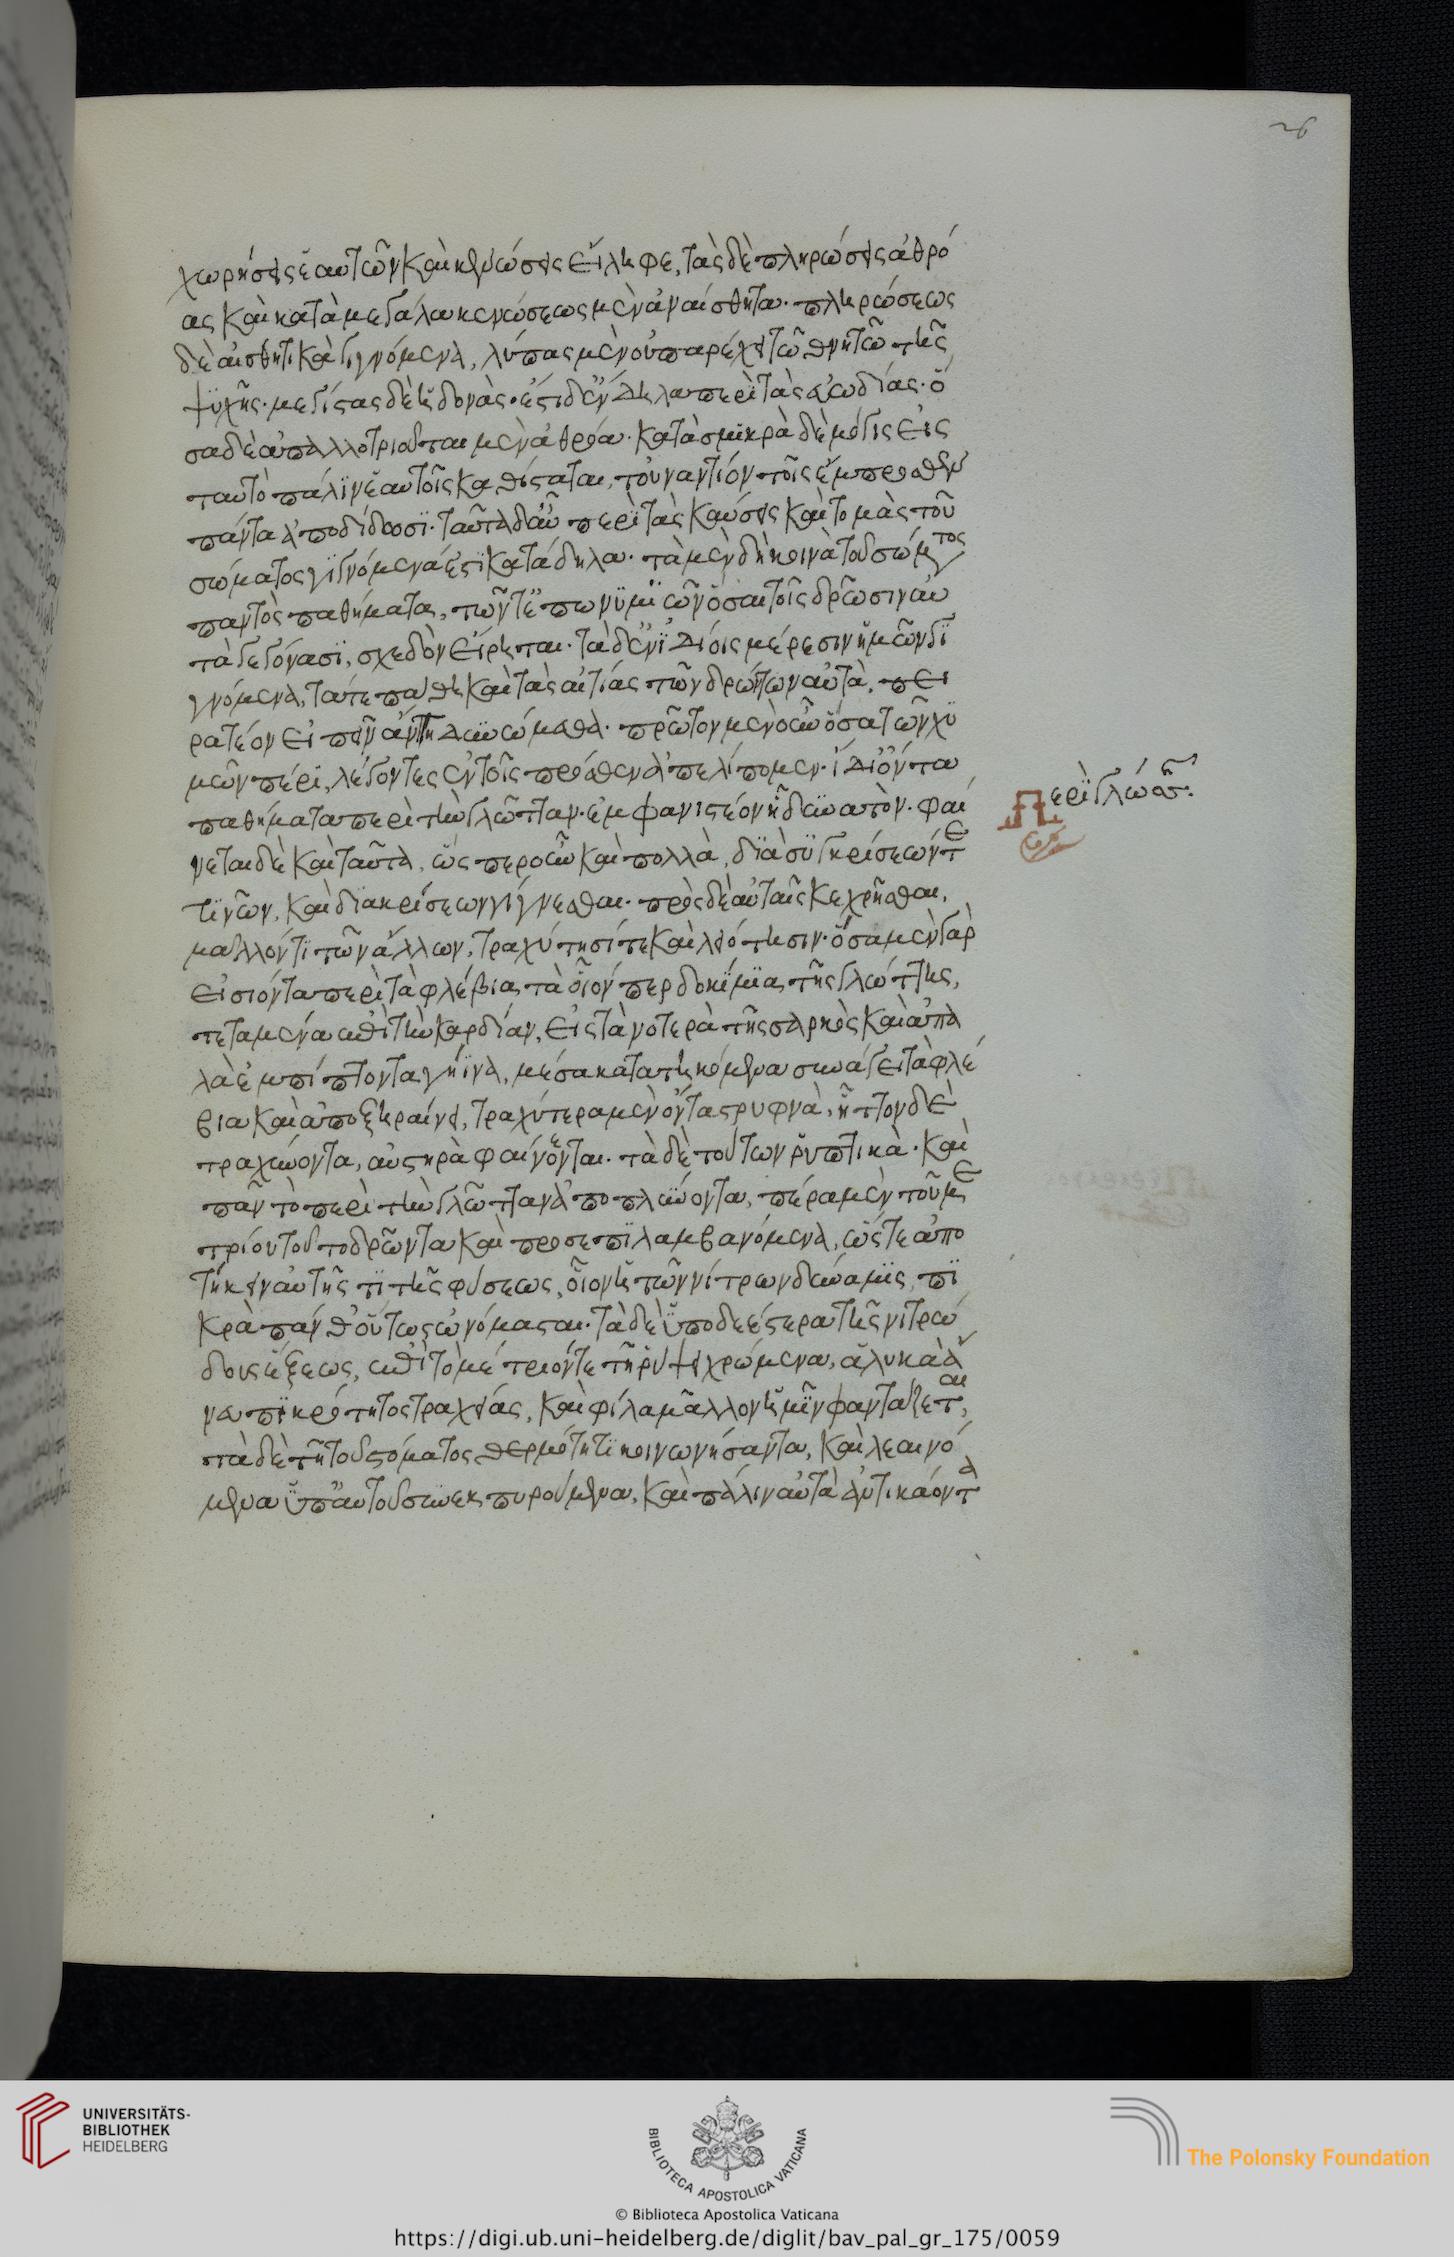 26
χωρήσεις ἑαυτῶν καὶ κενώσεις εἴληφε, τὰς δὲ πληρώσεις ἀθρό
ας καὶ κατὰ μεγάλα κενώσεως μὲν ἀναίσθητα· πληρώσεως
δὲ αἰσθητικὰ γιγνόμενα, λύπας μὲν οὐ παρέχει τῶ θνητῶ τῆς
ψυχῆς· μεγίστας δὲ ἡδονάς· ἔστι δ' ἔνδηλα περὶ τὰς εὐωδίας· ὅ
σα δὲ ἀπαλλοτριοῦται μὲν ἀθρόα· κατὰ σμικρὰ δὲ μόγις εἰς
ταυτὸ πάλιν ἑαυτοῖς καθίσταται, τοὐναντίον τοῖς ἔμπροσθεν
πάντα ἀποδίδωσι· ταῦτα δ' αὖ περὶ τὰς καύσεις καὶ τομὰς τοῦ
σώματος γιγνόμενά ἐστι κατάδηλα· τὰ μὲν δὴ κοινὰ τοῦ σώμτος
παντὸς παθήματα, τῶν τ' ἐπωνυμιῶν ὅσαι τοῖς δρῶσιν αὐ
τὰ γεγόνασι, σχεδὸν εἴρηται· τὰ δ' ἐν ἰδίοις μέρεσιν ἡμῶν γι
γνόμενα, τά τε πάθη καὶ τὰς αἰτίας τῶν δρώντων αὐτά, πει
ρατέον εἰπεῖν ἄν τη δυνώμεθα· πρῶτον μὲν οὖν ὅσα τῶν χυ
μῶν πέρι, λέγοντες ἐν τοῖς πρόσθεν ἀπελίπομεν· ἴδι' ὄντα
παθήματα περὶ τὴν γλῶτταν· ἐμφανιστέον ᾗ δυνατόν· φαί
Περὶ γλώσσης
νεται δὲ καὶ ταῦτα, ὥσπερ οὖν καὶ πολλὰ, διὰ συγκρίσεών τε
τινῶν, καὶ διακρίσεων γίγνεσθαι· πρὸς δὲ αὐταῖς κεχρῆσθαι,
μᾶλλόν τι τῶν ἄλλων, τραχύτησί τε καὶ λειότησιν· ὅσα μὲν γὰρ
εἰσιόντα περὶ τὰ φλέβια, τὰ οἷόνπερ δοκίμια τῆς γλώττης,
τεταμένα ἐπὶ τὴν καρδίαν, εἰς τὰ νοτερὰ τῆς σαρκὸς καὶ ἁπα
λὰ ἐμπίπτοντα γήϊνα, μέσα κατατηκόμενα συνάγει τὰ φλέ
βια καὶ ἀποξηραίνει, τραχύτερα μὲν ὄντα στρυφνὰ, ἧττον δὲ
τραχύνοντα, αὐστηρὰ φαίνονται· τὰ δὲ τούτων ῥυπτικὰ· καὶ
πᾶν τὸ περὶ τὴν γλῶτταν ἀποπλύνοντα, πέρα μὲν τοῦ με
τρίου τοῦτο δρῶντα καὶ προσεπιλαμβανόμενα, ὥστε ἀπο
τήκειν αὐτῆς τι τῆς φύσεως, οἷον ἡ τῶν νίτρων δύναμις, πι
κρὰ πάνθ' οὕτως ὠνόμασται· τὰ δὲ ὑποδεέστερα τῆς νιτρώ
δους ἕξεως, ἐπὶ τὸ μέτριόν τε τῇ ῥύψει χρώμενα, ἁλυκὰ ἄ
νευ πικρότητος τραχείας, καὶ φίλα μᾶλλον ἡμῖν φαντάζεται,
τὰ δὲ τῇ τοῦ στόματος θερμότητι κοινωνήσαντα, καὶ λεαινό
μενα ὑπ' αὐτοῦ συνεκπυρούμενα, καὶ πάλιν αὐτὰ ἀντικάοντα
UNIVERSITÄTS-
BIBLIOTHEK
HEIDELBERG
BIBLIOTECA APOSTOLICA VATICANA
The Polonsky Foundation
© Biblioteca Apostolica Vaticana
https://digi.ub.uni-heidelberg.de/diglit/bav_pal_gr_175/0059